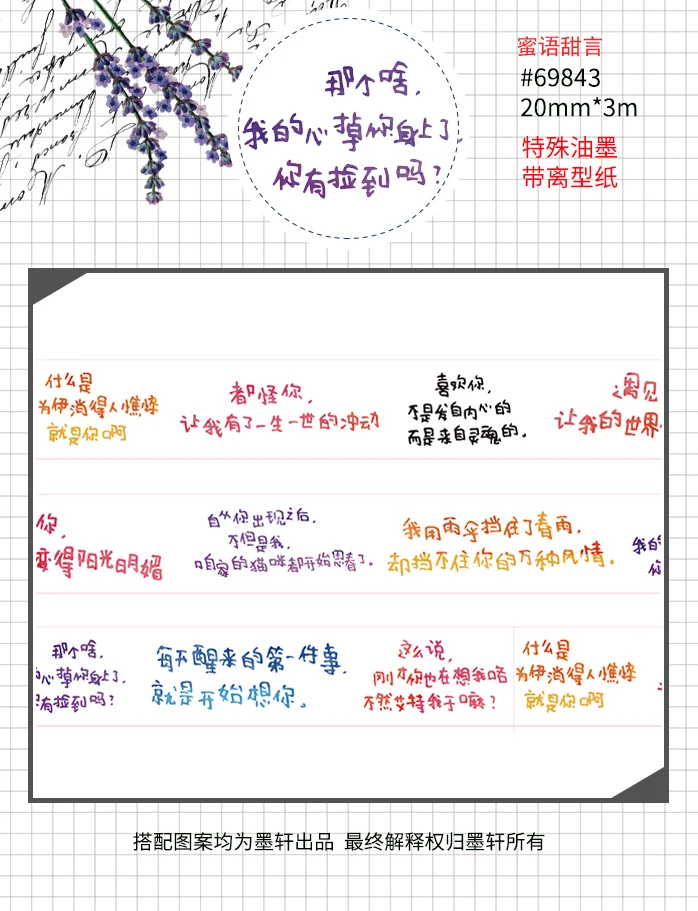 那个啥，
我的心掉你身上了，
你有捡到吗？
蜜语甜言
#69843
20mm*3m
特殊油墨
带离型纸
什么是
为伊消得人憔悴
就是你啊
都怪你，
让我有了一生一世的冲动
喜欢你，
不是发自内心的
而是来自灵魂的。
遇见
让我的世界
你，
变得阳光明媚
自从你出现之后，
不但是我，
咱家的猫咪都开始思春了。
我用雨伞挡住了春雨，
却挡不住你的万种风情。
我的
你
那个啥，
心掉你身上了，
有捡到吗？
每天醒来的第一件事，
就是开始想你。
这么说，
刚才你也在想我咯
不然艾特我干嘛？
什么是
为伊消得人憔悴
就是你啊
搭配图案均为墨轩出品 最终解释权归墨轩所有